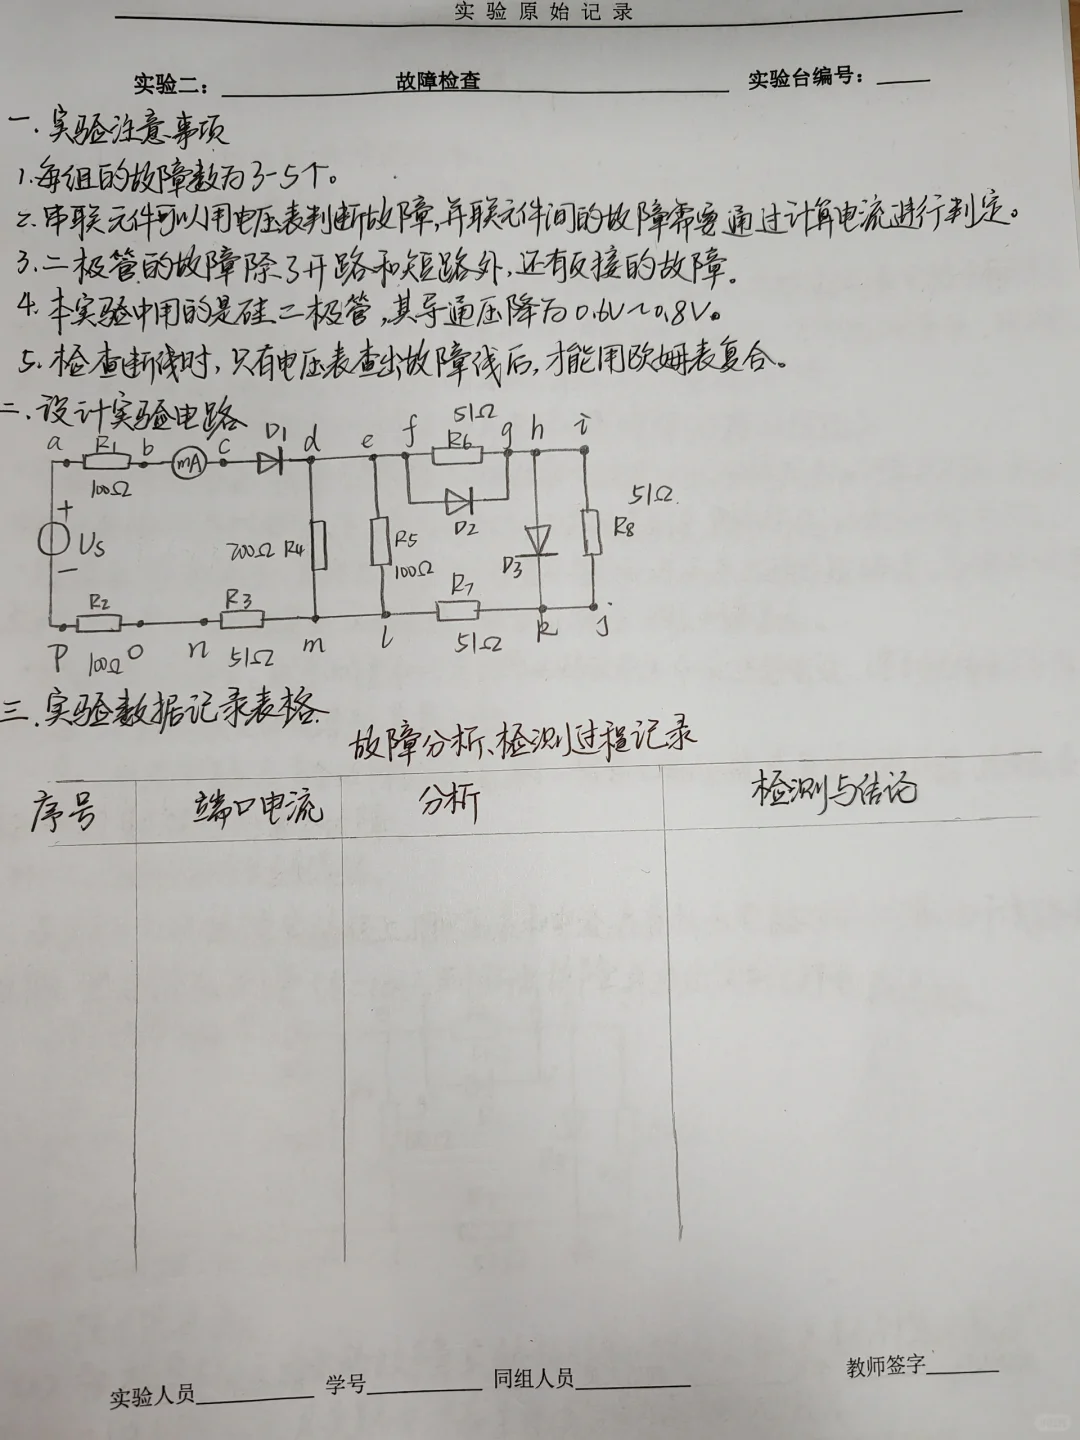 实验原始记录
实验二： 故障检查 实验台编号：
一.实验注意事项
1.每组的故障数为3-5个。
2.串联元件可以用电压表判断故障,并联元件间的故障需要通过计算电流进行判定。
3.二极管的故障除了开路和短路外,还有反接的故障.
4.本实验中用的是硅二极管,其导通压降为0.6V~0.8V。
5.检查断线时,只有电压表查出故障线后,才能用欧姆表复合。
二.设计实验电路
51Ω
a R1 b mA c D1 d e f R6 g h i
100Ω
+ Us −
D2
51Ω
R8
200Ω R4
R5 100Ω
D3
R2 R3 R7
p 100Ω o n 51Ω m l 51Ω k j
三.实验数据记录表格.
故障分析、检测过程记录
序号 端口电流 分析 检测与结论
实验人员 学号 同组人员 教师签字